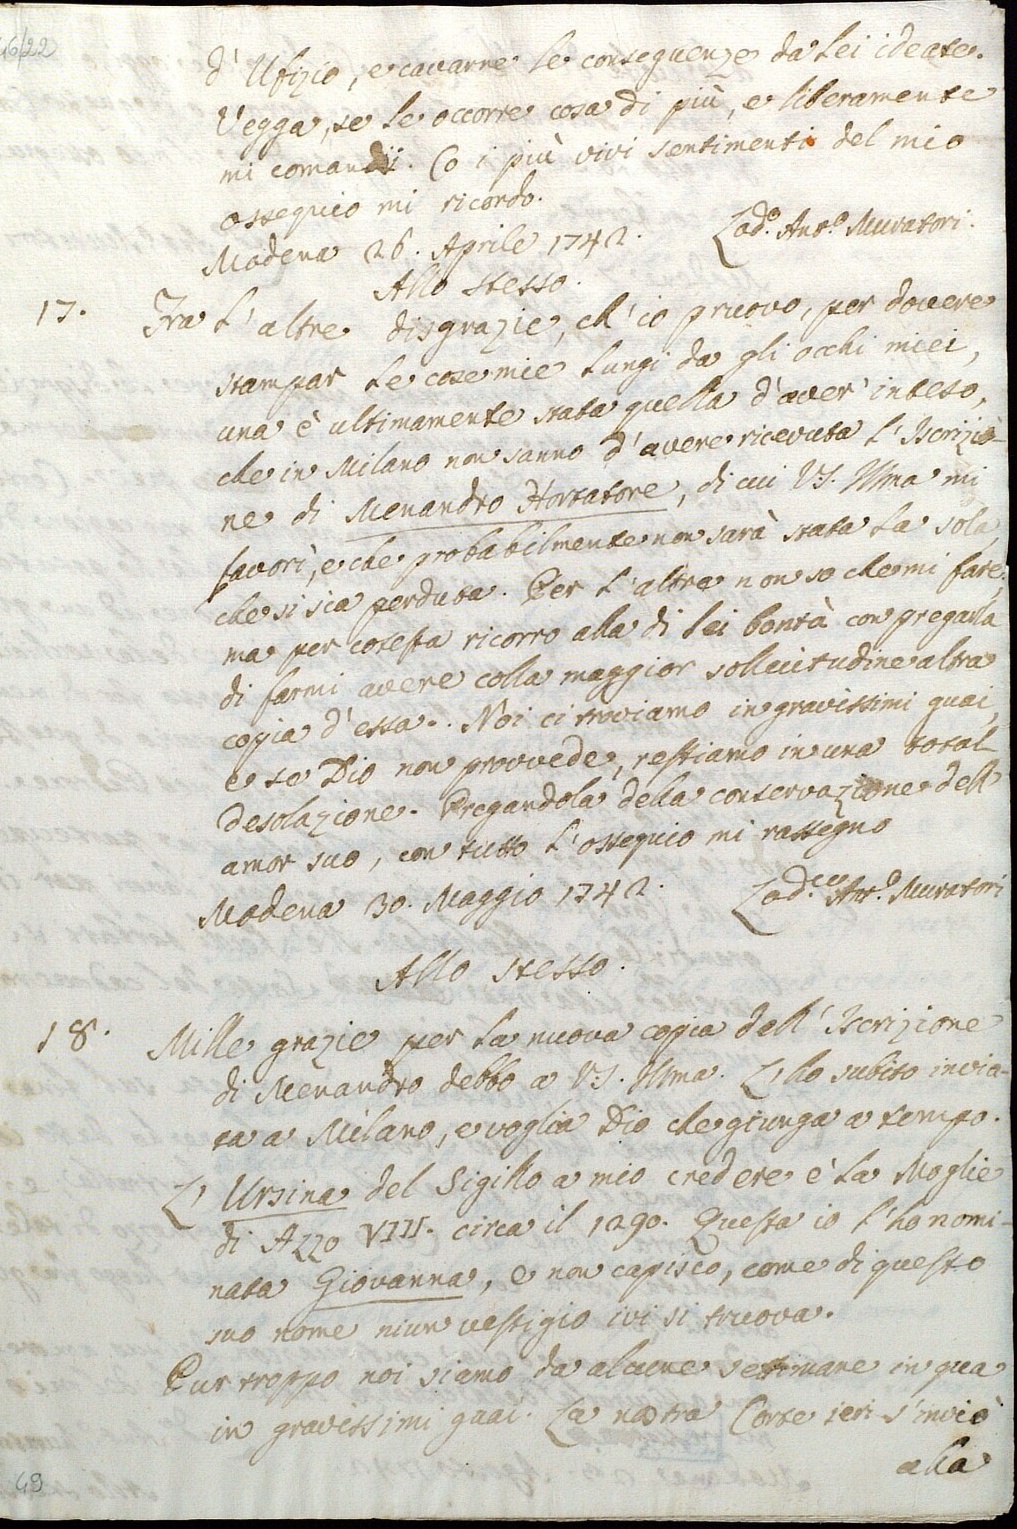 16/22
d'Ufizio, e cavarne le conseguenze da Lei ideate.
Vegga, se le occorre cosa di più, e liberamente
mi comandi. Co i più vivi sentimenti del mio
ossequio mi ricordo.
Modena 26. Aprile 1742. Lod.º Ant.º Muratori.
Allo stesso.
17. Fra l'altre disgrazie, ch'io pruovo, per dovere
stampar le cose mie lungi da gli occhi miei,
una è ultimamente stata quella d'aver' inteso,
che in Milano non sanno d'avere ricevuta l'Iscrizio-
ne di Menandro Hortatore, di cui VS. Illma mi
favorì, e che probabilmente non sarà stata la sola,
che si sia perduta. Per l'altre non so che mi fare,
ma per cotesta ricorro alla di Lei bontà con pregarla
di farmi avere colla maggior sollecitudine altra
copia d'essa. Noi ci troviamo in gravissimi guai,
e se Dio non provvede, restiamo in una total
desolazione. Pregandola della conservazione dell'
amor suo, con tutto l'ossequio mi rassegno
Modena 30. Maggio 1742. Lod.co Ant.º Muratori
Allo stesso.
18. Mille grazie per la nuova copia dell'Iscrizione
di Menandro debbo a VS. Illma. L'ho subito invia-
ta a Milano, e voglia Dio che giunga a tempo.
L'Ursina del Sigillo a mio credere è la Moglie
di Azzo VIII. circa il 1290. Questa io l'ho nomi-
nata Giovanna, e non capisco, come di questo
suo nome niun vestigio ivi si truova.
Pur troppo noi siamo da alcune settimane in qua
in gravissimi guai. La nostra Corte ieri s'inviò
alla
49